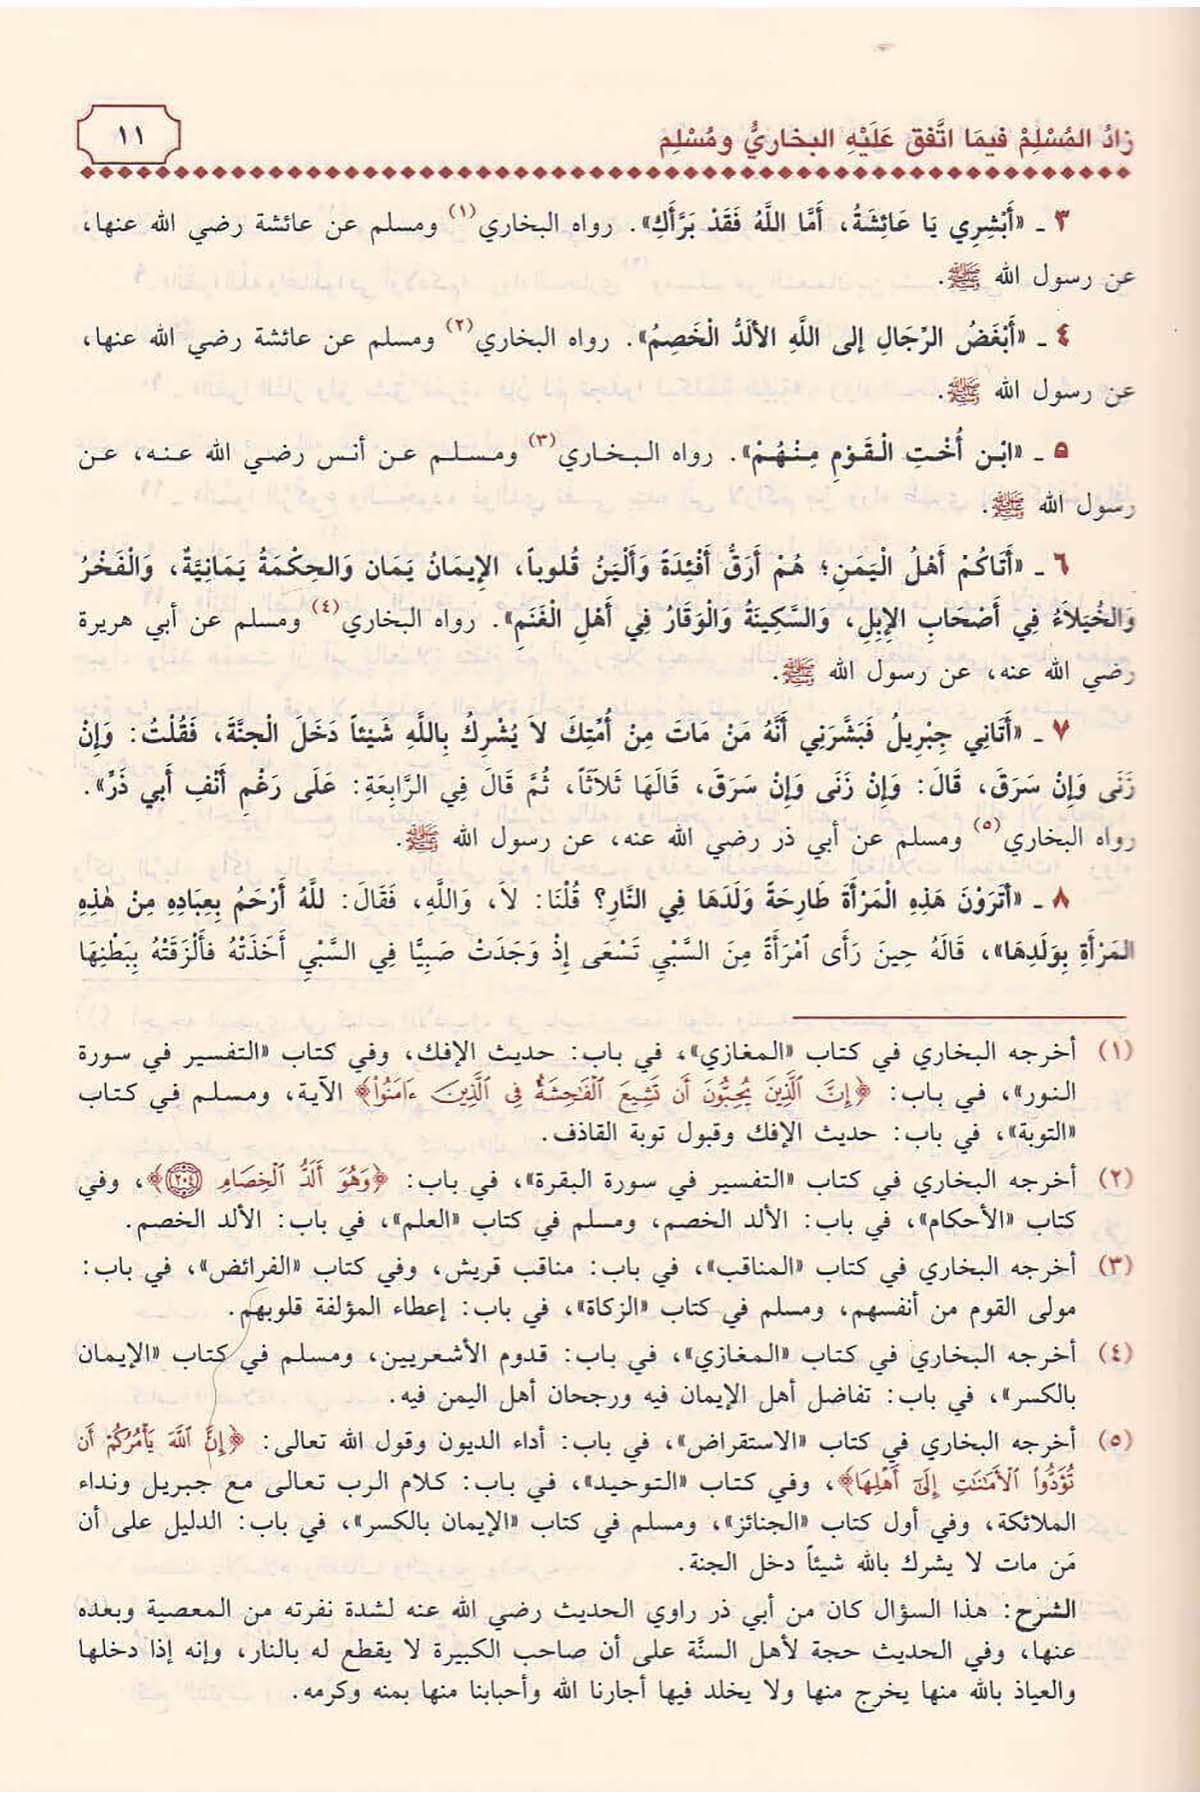 زادُ المُسْلِمْ فيمَا اتَّفق عَلَيْهِ البخاريُّ ومُسْلِم
١١
٣ ـ «أَبْشِرِي يَا عَائِشَةُ، أَمَّا اللَّهُ فَقَدْ بَرَّأَكِ». رواه البخاري(١) ومسلم عن عائشة رضي الله عنها،
عن رسول الله ﷺ.
٤ ـ «أَبْغَضُ الرِّجَالِ إلى اللَّهِ الأَلَدُّ الْخَصِمُ». رواه البخاري(٢) ومسلم عن عائشة رضي الله عنها،
عن رسول الله ﷺ.
٥ ـ «ابْن أُخْتِ الْقَوْمِ مِنْهُمْ». رواه البخاري(٣) ومسلم عن أنس رضي الله عنه، عن
رسول الله ﷺ.
٦ ـ «أَتَاكُمْ أَهْلُ الْيَمَنِ؛ هُمْ أَرَقُّ أَفْئِدَةً وَأَلْيَنُ قُلوباً، الإِيمَانُ يَمَان وَالحِكْمَةُ يَمَانِيَّةٌ، وَالْفَخْرُ
وَالْخُيَلاَءُ فِي أَصْحَابِ الإِبِلِ، وَالسَّكِينَةُ وَالْوَقَارُ فِي أَهْلِ الْغَنَمِ». رواه البخاري(٤) ومسلم عن أبي هريرة
رضي الله عنه، عن رسول الله ﷺ.
٧ ـ «أَتَانِي جِبْرِيلُ فَبَشَّرَنِي أَنَّهُ مَنْ مَاتَ مِنْ أُمَّتِكَ لاَ يُشْرِكُ بِاللَّهِ شَيْئاً دَخَلَ الْجنَّةَ، فَقُلْتُ: وَإِنْ
زَنَى وَإِنْ سَرَقَ، قَالَ: وَإِنْ زَنَى وَإِنْ سَرَقَ، قَالَهَا ثَلاَثَاً، ثُمَّ قَالَ فِي الرَّابِعَةِ: عَلَى رَغْمِ أَنْفِ أَبي ذَرٍّ».
رواه البخاري(٥) ومسلم عن أبي ذر رضي الله عنه، عن رسول الله ﷺ.
٨ ـ «أَتَرَوْنَ هَذِهِ الْمَرْأَةَ طَارِحَةً وَلَدَهَا فِي النَّارِ؟ قُلْنَا: لاَ، وَاللَّهِ، فَقَالَ: للَّهُ أَرْحَمُ بِعِبَادِهِ مِنْ هٰذِهِ
المَرْأَةِ بِوَلَدِهَا»، قَالَهُ حِينَ رَأَى ٱمْرَأَةً مِنَ السَّبْيِ تَسْعَى إِذْ وَجَدَتْ صَبِيًّا فِي السَّبْيِ أَخَذَتْهُ فَأَلْزَقَتْهُ بِبَطْنِهَا
(١) أخرجه البخاري في كتاب «المغازي»، في باب: حديث الإفك، وفي كتاب «التفسير في سورة
النور»، في باب: ﴿إِنَّ ٱلَّذِينَ يُحِبُّونَ أَن تَشِيعَ ٱلْفَٰحِشَةُ فِى ٱلَّذِينَ ءَامَنُوا۟﴾ الآية، ومسلم في كتاب
«التوبة»، في باب: حديث الإفك وقبول توبة القاذف.
(٢) أخرجه البخاري في كتاب «التفسير في سورة البقرة»، في باب: ﴿وَهُوَ أَلَدُّ ٱلْخِصَامِ ٢٠٤﴾، وفي
كتاب «الأحكام»، في باب: الألد الخصم، ومسلم في كتاب «العلم»، في باب: الألد الخصم.
(٣) أخرجه البخاري في كتاب «المناقب»، في باب: مناقب قريش، وفي كتاب «الفرائض»، في باب:
مولى القوم من أنفسهم، ومسلم في كتاب «الزكاة»، في باب: إعطاء المؤلفة قلوبهم.
(٤) أخرجه البخاري في كتاب «المغازي»، في باب: قدوم الأشعريين، ومسلم في كتاب «الإيمان
بالكسر»، في باب: تفاضل أهل الإيمان فيه ورجحان أهل اليمن فيه.
(٥) أخرجه البخاري في كتاب «الاستقراض»، في باب: أداء الديون وقول الله تعالى: ﴿إِنَّ ٱللَّهَ يَأْمُرُكُمْ أَن
تُؤَدُّوا۟ ٱلْأَمَٰنَٰتِ إِلَىٰٓ أَهْلِهَا﴾، وفي كتاب «التوحيد»، في باب: كلام الرب تعالى مع جبريل ونداء
الملائكة، وفي أول كتاب «الجنائز»، ومسلم في كتاب «الإيمان بالكسر»، في باب: الدليل على أن
مَن مات لا يشرك بالله شيئاً دخل الجنة.
الشرح: هذا السؤال كان من أبي ذر راوي الحديث رضي الله عنه لشدة نفرته من المعصية وبعده
عنها، وفي الحديث حجة لأهل السنَّة على أن صاحب الكبيرة لا يقطع له بالنار، وإنه إذا دخلها
والعياذ بالله منها يخرج منها ولا يخلد فيها أجارنا الله وأحبابنا منها بمنه وكرمه.